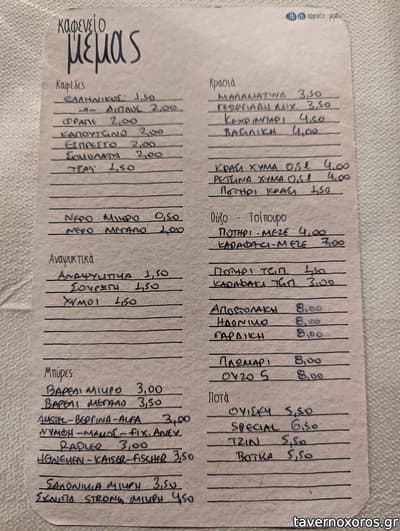 καφενείο
μέμας
Καφέδες
ΕΛΛΗΝΙΚΟΣ 1,50
-"- ΔΙΠΛΟΣ 2,00
ΦΡΑΠΕ 2,00
ΚΑΠΟΥΤΣΙΝΟ 2,00
ΕΣΠΡΕΣΣΟ 2,00
ΣΟΚΟΛΑΤΑ 2,00
ΤΣΑΪ 1,50
ΝΕΡΟ ΜΙΚΡΟ 0,50
ΝΕΡΟ ΜΕΓΑΛΟ
Αναψυκτικά
ΑΝΑΨΥΚΤΙΚΑ 1,50
ΣΟΥΡΩΤΗ 1,50
ΧΥΜΟΙ 1,50
Μπύρες
ΒΑΡΕΛΙ ΜΙΚΡΟ 3,00
ΒΑΡΕΛΙ ΜΕΓΑΛΟ 3,50
AMSTEL-ΒΕΡΓΙΝΑ-ΑΛΦΑ 3,00
ΝΥΜΦΗ-ΜΑΜΟΣ-FIX ΑΝΕΥ
RADLER 3,00
HEINEKEN-KAISER-FISCHER 3,50
ΣΑΛΟΝΙΚΙΑ ΜΙΚΡΗ 3,50
ΣΚΝΙΠΑ STRONG ΜΙΚΡΗ 4,50
Κρασιά
ΜΑΛΑΜΑΤΙΝΑ 3,50
ΓΕΩΡΓΙΑΔΗ 3,50
ΚΕΧΡΙΜΠΑΡΙ 4,50
ΒΑΣΙΛΙΚΗ 4,00
ΚΡΑΣΙ ΧΥΜΑ 0,5l 4,00
ΡΕΤΣΙΝΑ ΧΥΜΑ 0,5l 4,00
ΠΟΤΗΡΙ ΚΡΑΣΙ 1,50
Ούζο - Τσίπουρο
ΠΟΤΗΡΙ-ΜΕΖΕ 4,00
ΚΑΡΑΦΑΚΙ-ΜΕΖΕ 7,00
ΠΟΤΗΡΙ ΤΣΙΠ. 1,50
ΚΑΡΑΦΑΚΙ ΤΣΙΠ 3,00
ΑΠΟΣΤΟΛΑΚΗ 8,00
ΗΔΟΝΙΚΟ 8,00
ΓΑΡΔΙΚΗ 8,00
ΠΛΩΜΑΡΙ 8,00
ΟΥΖΟ 5 8,00
Ποτά
ΟΥΙΣΚΥ 5,50
SPECIAL 6,50
ΤΖΙΝ 5,50
ΒΟΤΚΑ 5,50
tavernoxoros.gr